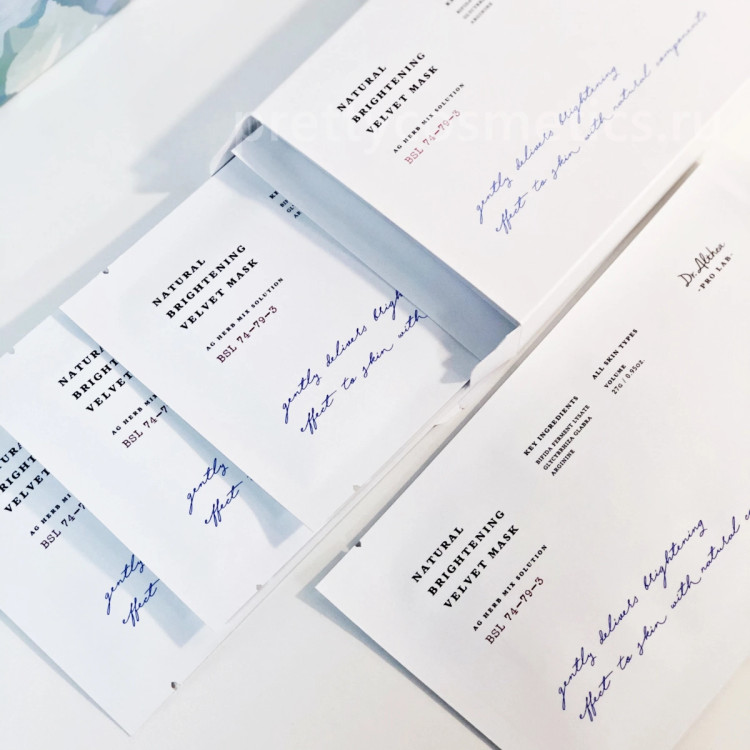 NATURAL
BRIGHTENING
VELVET MASK
AG HERB MIX SOLUTION
BSL 74-79-3
gently delivers brightening
effect to skin with natural components
prettycosmetics.ru
NATURAL
BRIGHTENING
VELVET MASK
AG HERB MIX SOLUTION
BSL 74-79-3
gently delivers brigh
effect to skin with
NATURAL
BRIGHT
VELVET
AG HERB MIX
BSL 74-7
gently
effect
URAL
RIGHT
VELVET
AG HERB MIX
BSL 74-
gently
effect
Dr.Althea
-PRO LAB-
ALL SKIN TYPES
VOLUME
27g / 0.95oz.
KEY INGREDIENTS
BIFIDA FERMENT LYSATE
GLYCYRRHIZA GLABRA
ARGININE
NATURAL
BRIGHTENING
VELVET MASK
AG HERB MIX SOLUTION
BSL 74-79-3
gently delivers brightening
effect to skin with natural co